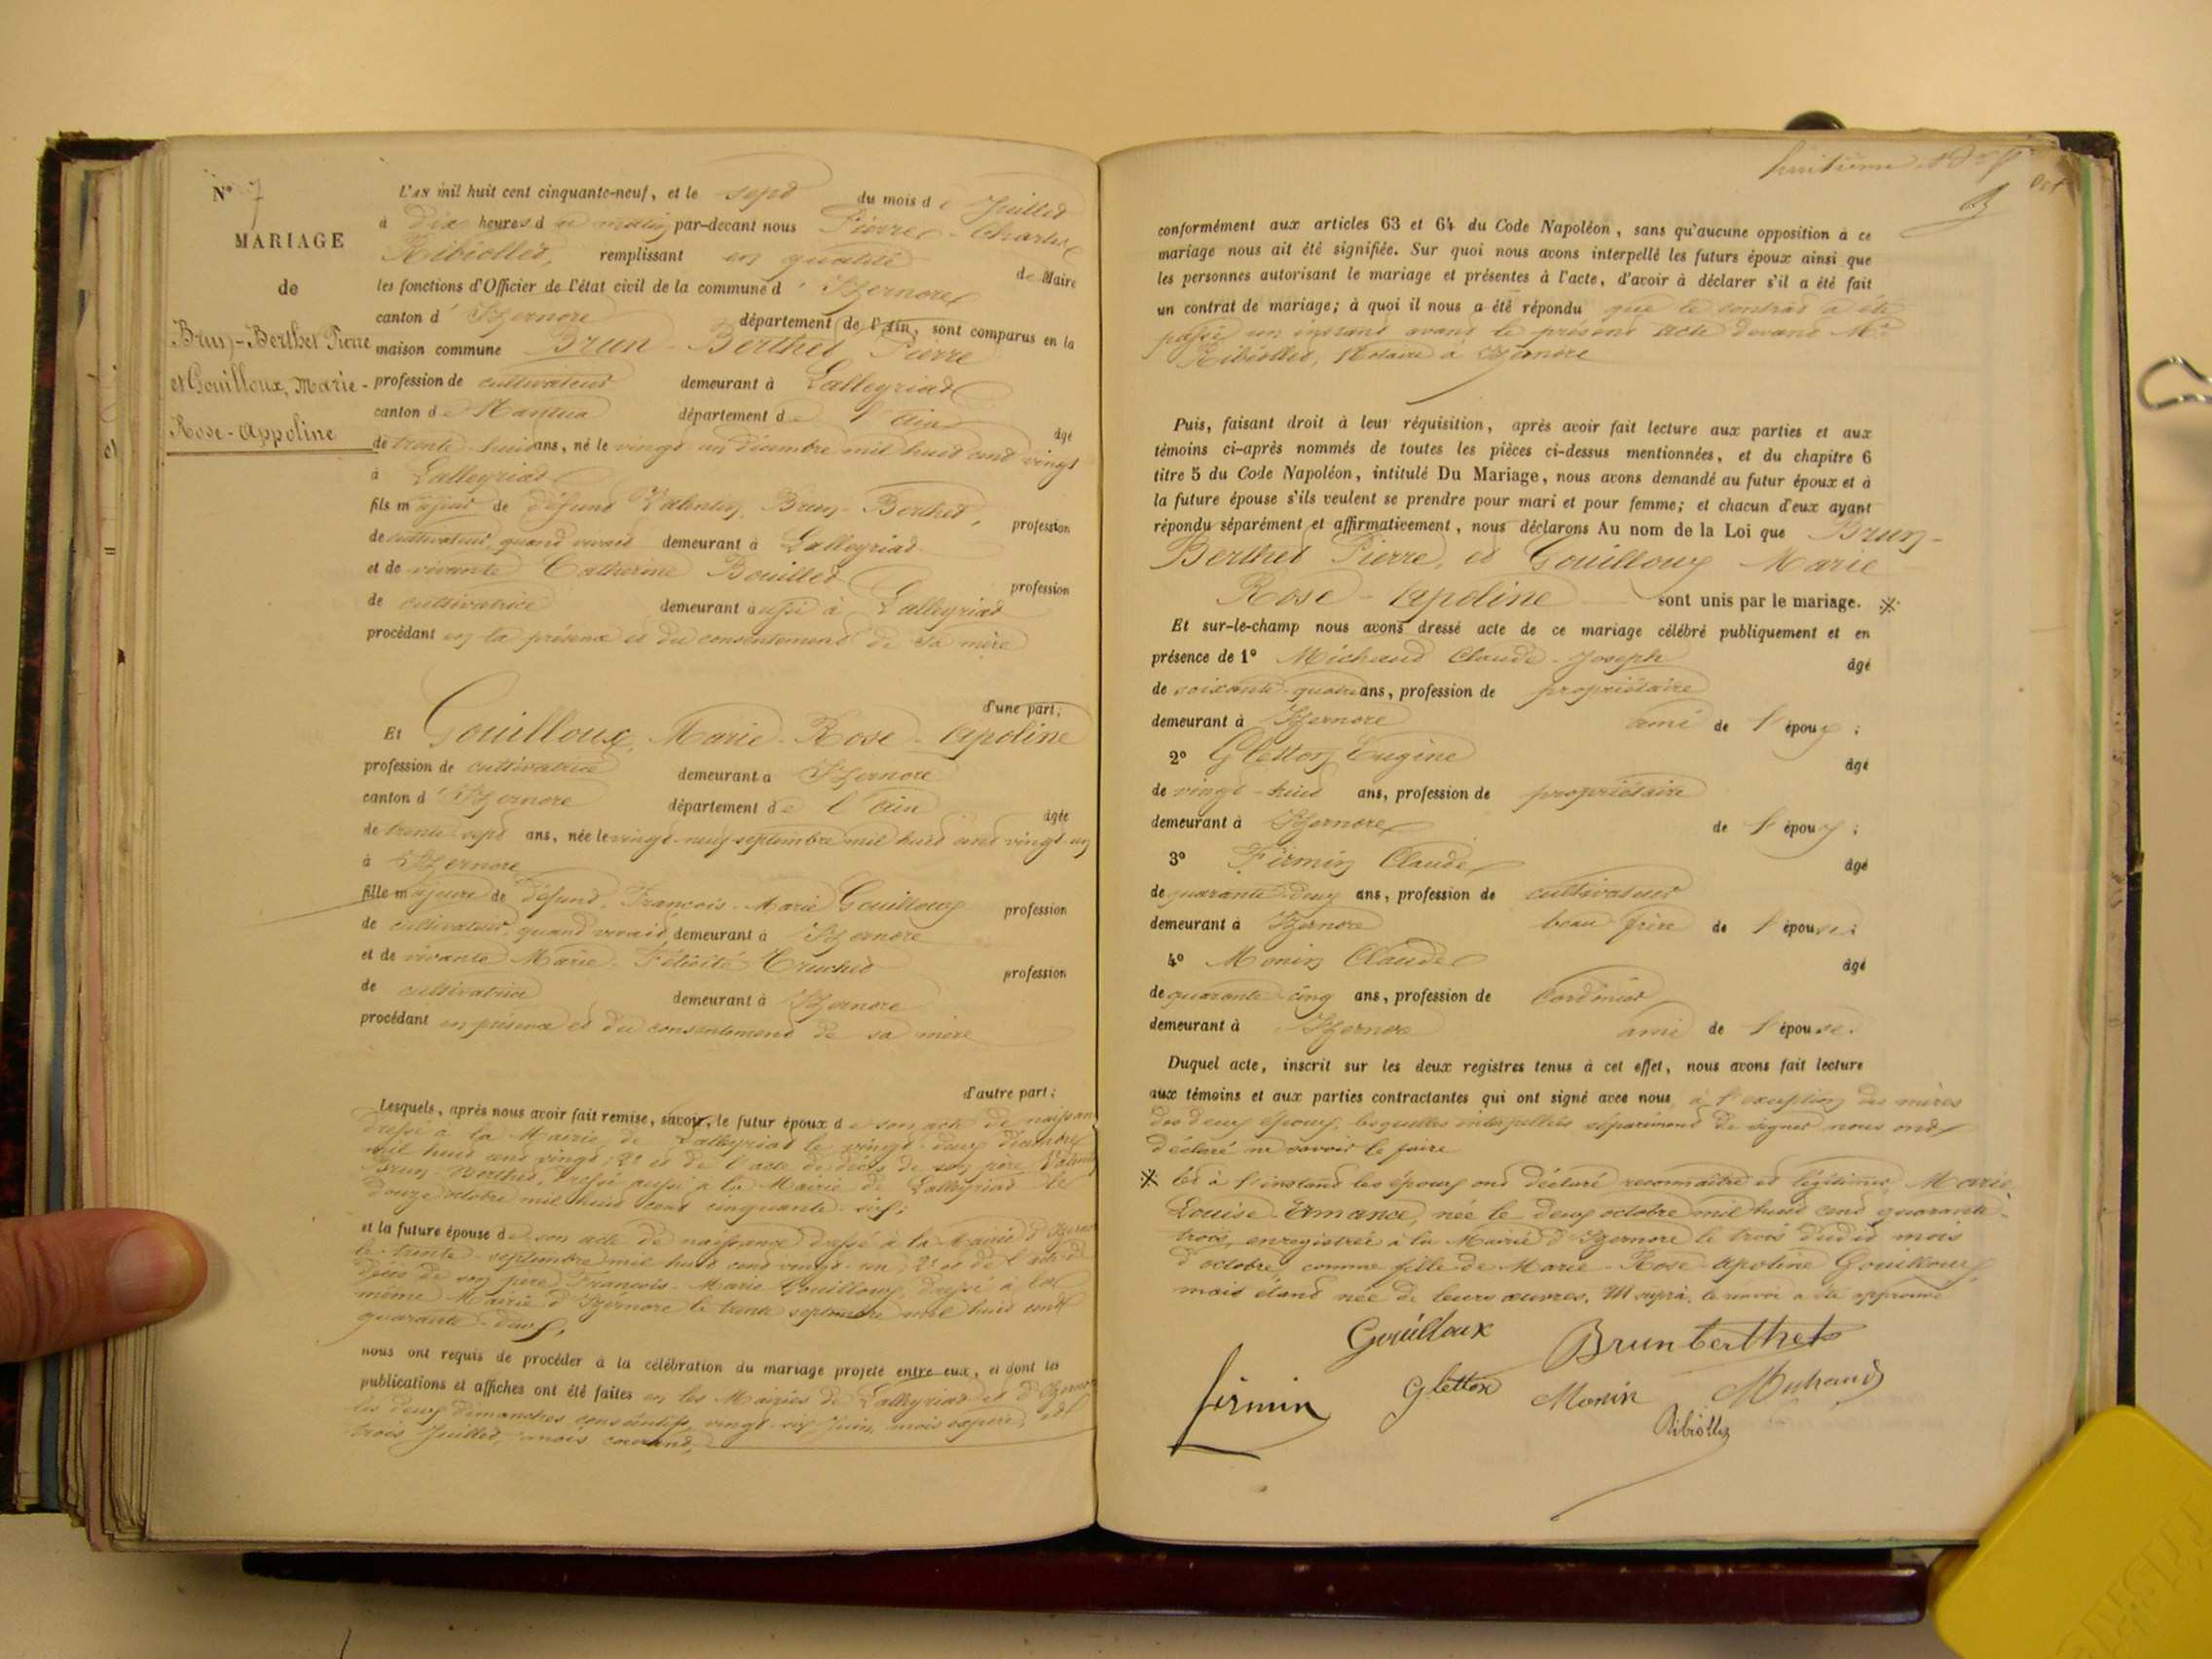 N° 7
MARIAGE
de
Brun-Berthet Pierre
et Gouilloux, Marie-
Rose-Appoline
L'an mil huit cent cinquante-neuf, et le sept du mois de Juillet
à dix heures du matin par-devant nous Pierre-Charles
Ribiollet, remplissant en qualité de Maire
les fonctions d'Officier de l'état civil de la commune d'Izernore
canton d'Izernore département de l'Ain, sont comparus en la
maison commune Brun-Berthet Pierre
profession de cultivateur demeurant à Lalleyriat
canton de Nantua département de l'Ain âgé
de trente-huit ans, né le vingt un décembre mil huit cent vingt
à Lalleyriat
fils majeur de défunt Valentin Brun-Berthet, profession
de cultivateur, quand vivait demeurant à Lalleyriat
et de vivante Catherine Bouillet profession
de cultivatrice demeurant aussi à Lalleyriat
procédant en la présence et du consentement de sa mère
d'une part;
Et Gouilloux, Marie-Rose-Apoline
profession de cultivatrice demeurant à Izernore
canton d'Izernore département de l'Ain âgée
de trente-sept ans, née le vingt-neuf septembre mil huit cent vingt-un
à Izernore
fille majeure de défunt François-Marie Gouilloux profession
de cultivateur, quand vivait, demeurant à Izernore
et de vivante Marie-Félicité profession
de cultivatrice demeurant à Izernore
procédant en présence et du consentement de sa mère
d'autre part;
Lesquels, après nous avoir fait remise, savoir, le futur époux de son acte de naissan
dressé à la Mairie de Lalleyriat le vingt-deux décembre
mil huit cent vingt; 2° et de l'acte de décès de son père Valentin
Brun-Berthet, dressé aussi à la Mairie de Lalleyriat le
douze octobre mil huit cent cinquante-six;
et la future épouse de son acte de naissance dressé à la Mairie d'Izernore
le trente septembre mil huit cent vingt-un, 2° et de l'acte de
décès de son père François-Marie Gouilloux, dressé à la
même Mairie d'Izernore le trente septembre mil huit cent
quarante-deux,
nous ont requis de procéder à la célébration du mariage projeté entre eux, et dont les
publications et affiches ont été faites en les Mairies de Lalleyriat et d'Izernore
les deux dimanches consécutifs, vingt-six Juin, mois expiré, et
trois Juillet, mois courant,
huitième et
conformément aux articles 63 et 64 du Code Napoléon, sans qu'aucune opposition à ce
mariage nous ait été signifiée. Sur quoi nous avons interpellé les futurs époux ainsi que
les personnes autorisant le mariage et présentes à l'acte, d'avoir à déclarer s'il a été fait
un contrat de mariage; à quoi il nous a été répondu que le contrat a été
passé un instant avant le présent acte devant Me
Ribiollet, Notaire à Izernore
Puis, faisant droit à leur réquisition, après avoir fait lecture aux parties et aux
témoins ci-après nommés de toutes les pièces ci-dessus mentionnées, et du chapitre 6
titre 5 du Code Napoléon, intitulé Du Mariage, nous avons demandé au futur époux et à
la future épouse s'ils veulent se prendre pour mari et pour femme; et chacun d'eux ayant
répondu séparément et affirmativement, nous déclarons Au nom de la Loi que Brun-
Berthet Pierre, et Gouilloux Marie
Rose-Apoline sont unis par le mariage. ※
Et sur-le-champ nous avons dressé acte de ce mariage célébré publiquement et en
présence de 1° Michaud Claude-Joseph âgé
de soixante-quatre ans, profession de propriétaire
demeurant à Izernore ami de l'époux;
2° Gletton Eugène âgé
de vingt-huit ans, profession de propriétaire
demeurant à Izernore de l'époux;
3° Firmin Claude âgé
de quarante-deux ans, profession de cultivateur
demeurant à Izernore beau frère de l'épouse;
4° Monin Claude âgé
de quarante-cinq ans, profession de Cordonnier
demeurant à Izernore ami de l'épouse.
Duquel acte, inscrit sur les deux registres tenus à cet effet, nous avons fait lecture
aux témoins et aux parties contractantes qui ont signé avec nous, à l'exception des mères
des deux époux, lesquelles interpellées séparément de signer nous ont
déclaré ne savoir le faire
※ Et à l'instant les époux ont déclaré reconnaître et légitimer Marie
Louise-Ermance, née le deux octobre mil huit cent quarante-
trois, enregistrée à la Mairie d'Izernore le trois dudit mois
d'octobre, comme fille de Marie-Rose-Apoline Gouilloux,
mais étant née de leurs œuvres. Ut suprà, le renvoi a été approuvé
Gouilloux Brun berthet
firmin Gletton Monin Michaud
Ribiollet